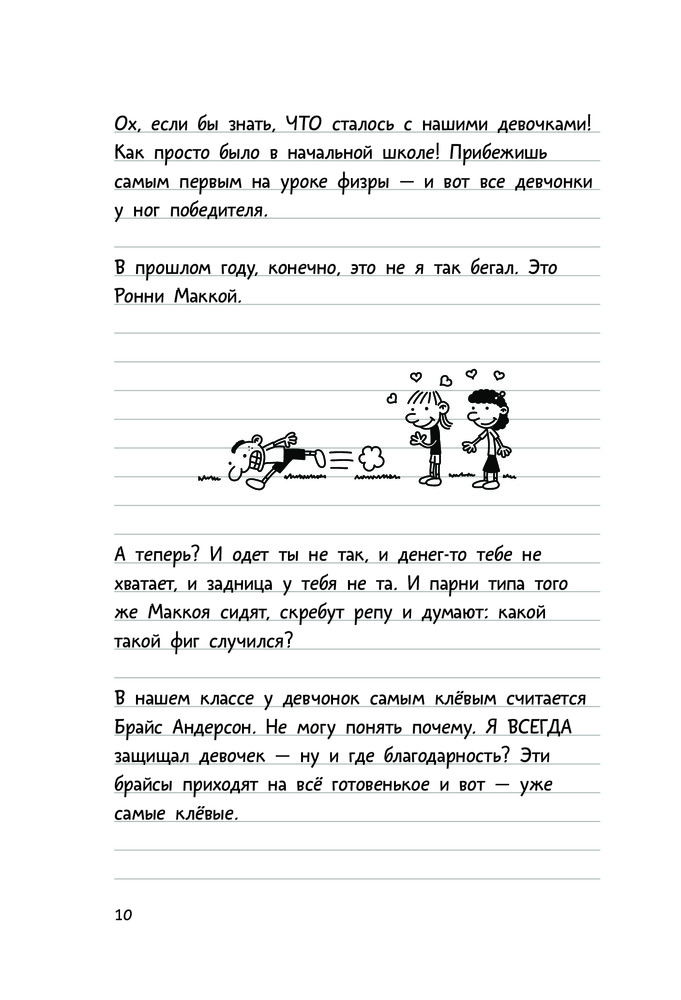 Ох, если бы знать, ЧТО сталось с нашими девочками!
Как просто было в начальной школе! Прибежишь
самым первым на уроке физры — и вот все девчонки
у ног победителя.
В прошлом году, конечно, это не я так бегал. Это
Ронни Маккой.
А теперь? И одет ты не так, и денег-то тебе не
хватает, и задница у тебя не та. И парни типа того
же Маккоя сидят, скребут репу и думают: какой
такой фиг случился?
В нашем классе у девчонок самым клёвым считается
Брайс Андерсон. Не могу понять почему. Я ВСЕГДА
защищал девочек — ну и где благодарность? Эти
брайсы приходят на всё готовенькое и вот — уже
самые клёвые.
10